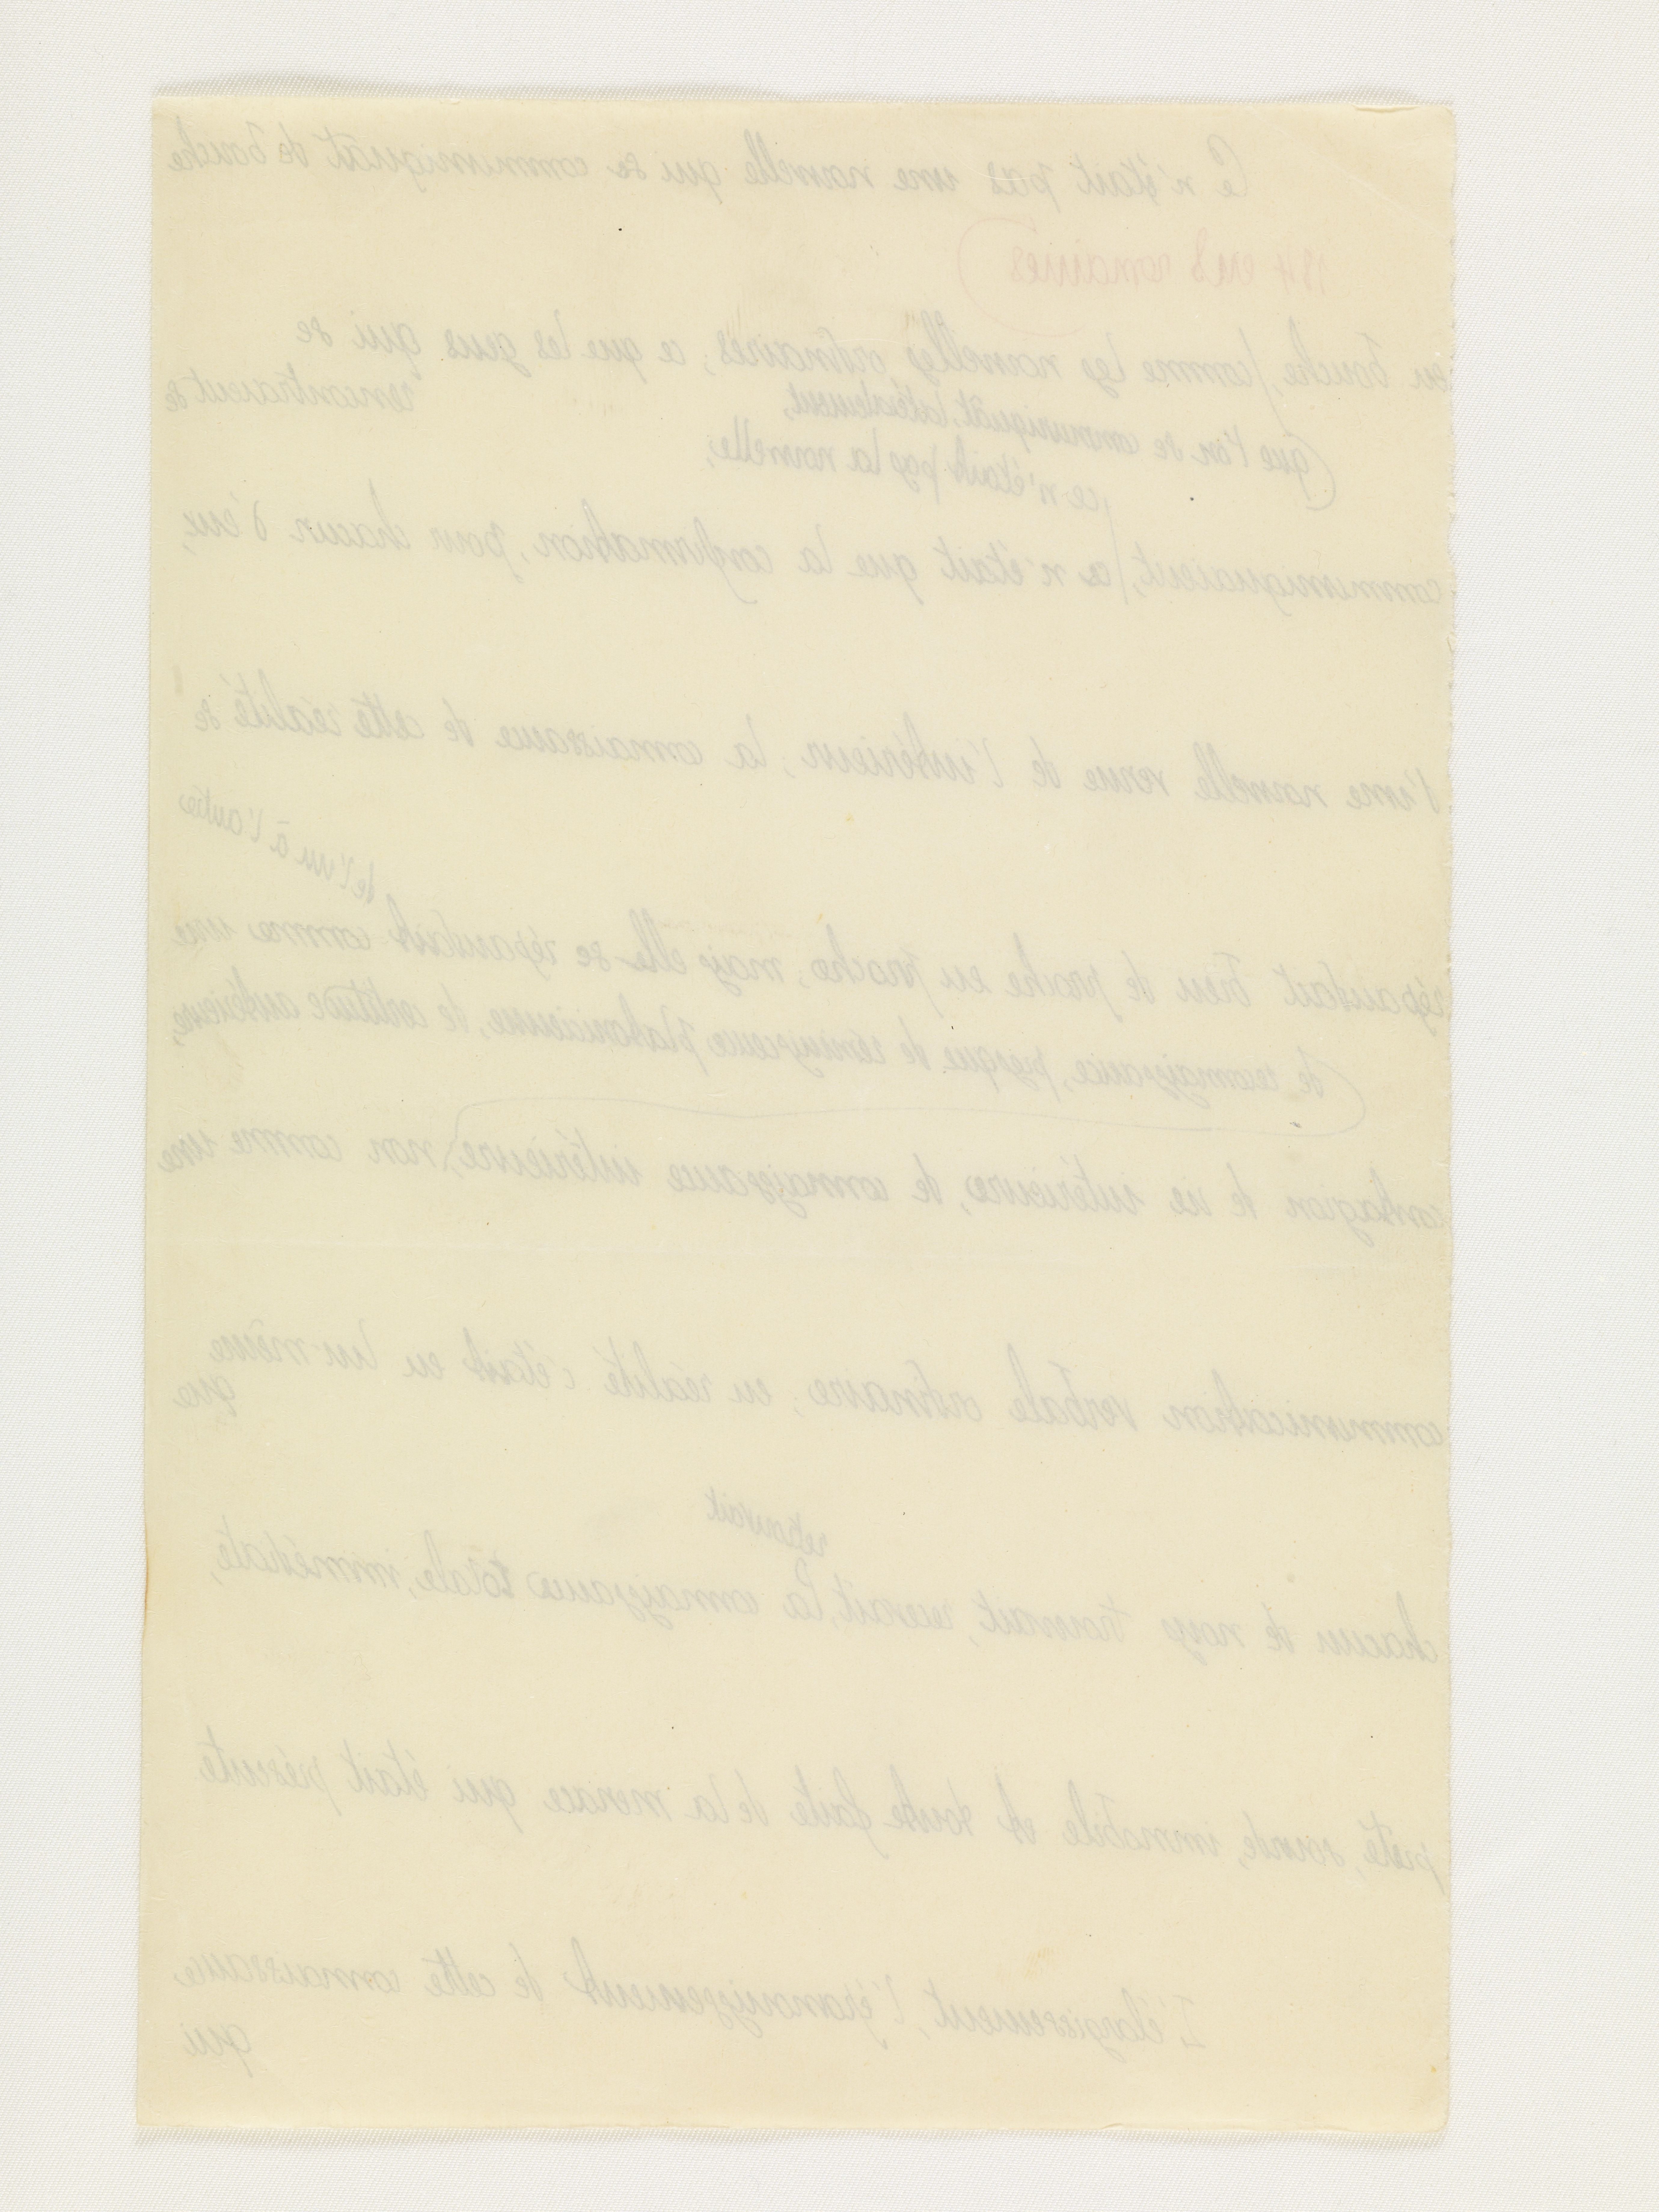 Ce n'était pas une nouvelle qui se communiquât de bouche
en 8 romaines
en bouche, comme les nouvelles ordinaires ; ce que les gens qui se
rencontraient se
que l'on se communiquât, latéralement,
ce n'était pas la nouvelle ;
communiquaient, ce n'était que la confirmation, pour chacun d'eux,
d'une nouvelle venue de l'intérieur ; la connaissance de cette réalité se
de l'un à l'autre
répandait bien de proche en proche ; mais elle se répandait comme une
de reconnaissance, presque de réminiscence platonicienne, de certitude antérieure,
contagion de vie intérieure, de connaissance intérieure, non comme une
communication verbale ordinaire ; en réalité c'était en lui même
que
retrouvait
chacun de nous trouvait, recevait, la connaissance totale, immédiate,
prête, sourde, immobile et toute faite de la menace qui était présente
L'élargissement, l'épanouissement de cette connaissance
qui